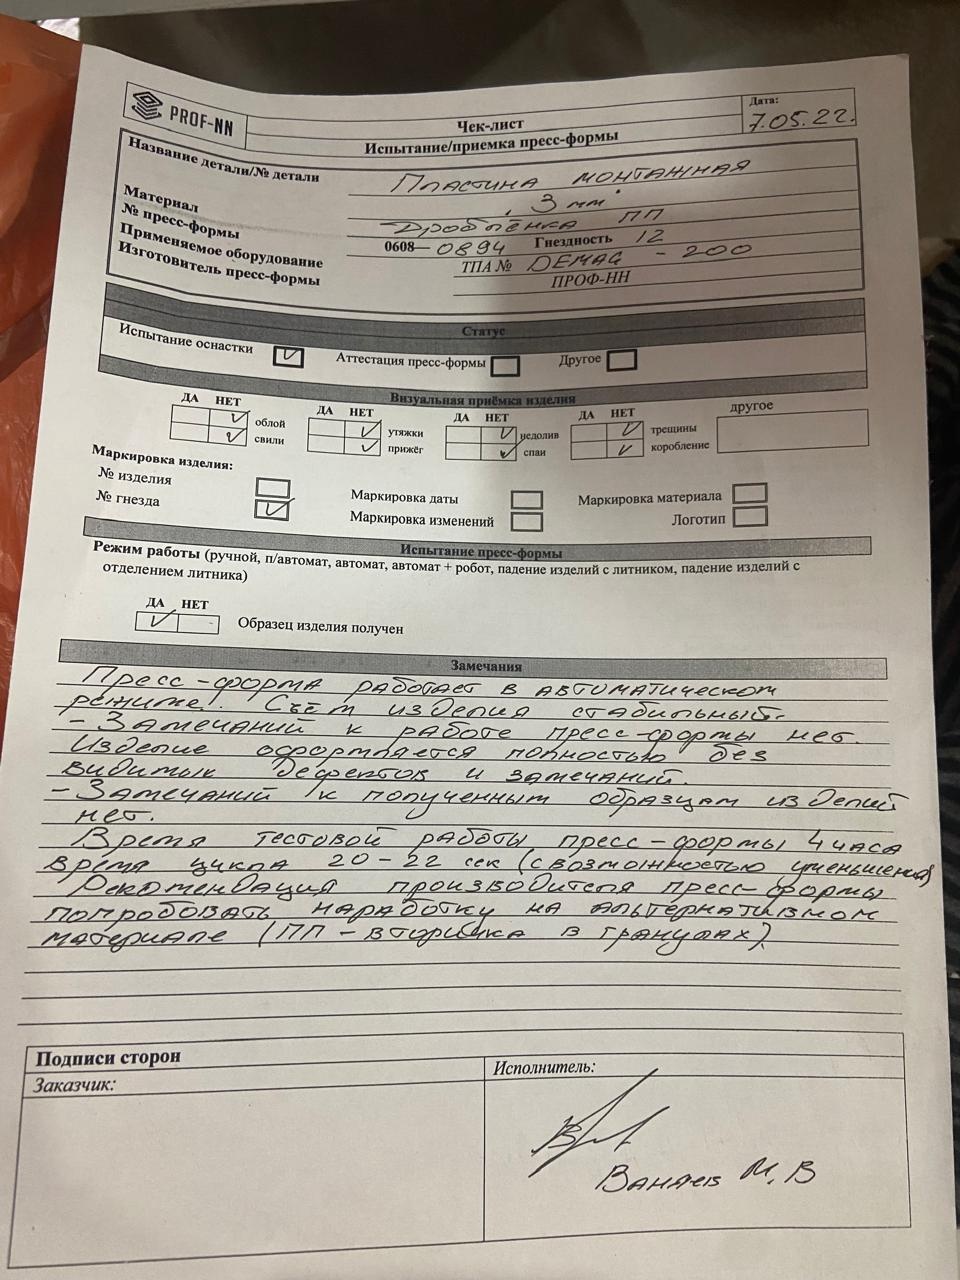 PROF-NN
Чек-лист
Испытание/приемка пресс-формы
Дата:
7.05.22.
Название детали/№ детали
Пластина монтажная
3 мм
Материал
Дробленка ПП
№ пресс-формы
0608— 0894 Гнездность 12
Применяемое оборудование
ТПА № DEMAG - 200
Изготовитель пресс-формы
ПРОФ-НН
Статус
Испытание оснастки
Аттестация пресс-формы
Другое
Визуальная приёмка изделия
ДА НЕТ
облой
свили
ДА НЕТ
утяжки
прижёг
ДА НЕТ
недолив
спаи
ДА НЕТ
трещины
коробление
другое
Маркировка изделия:
№ изделия
Маркировка даты
Маркировка материала
№ гнезда
Маркировка изменений
Логотип
Испытание пресс-формы
Режим работы (ручной, п/автомат, автомат, автомат + робот, падение изделий с литником, падение изделий с
отделением литника)
ДА НЕТ
Образец изделия получен
Замечания
Пресс-форма работает в автоматическом
режиме. Съём изделия стабильный.
- Замечаний к работе пресс-формы нет.
Изделие оформляется полностью без
видимых дефектов и замечаний.
- Замечаний к полученным образцам изделий
нет.
Время тестовой работы пресс-формы 4 часа
время цикла 20-22 сек (с возможностью уменьшения)
Рекомендация производителя пресс-формы
попробовать наработку на альтернативном
материале (ПП - вторичка в гранулах).
Подписи сторон
Заказчик:
Исполнитель:
Ванаев М.В